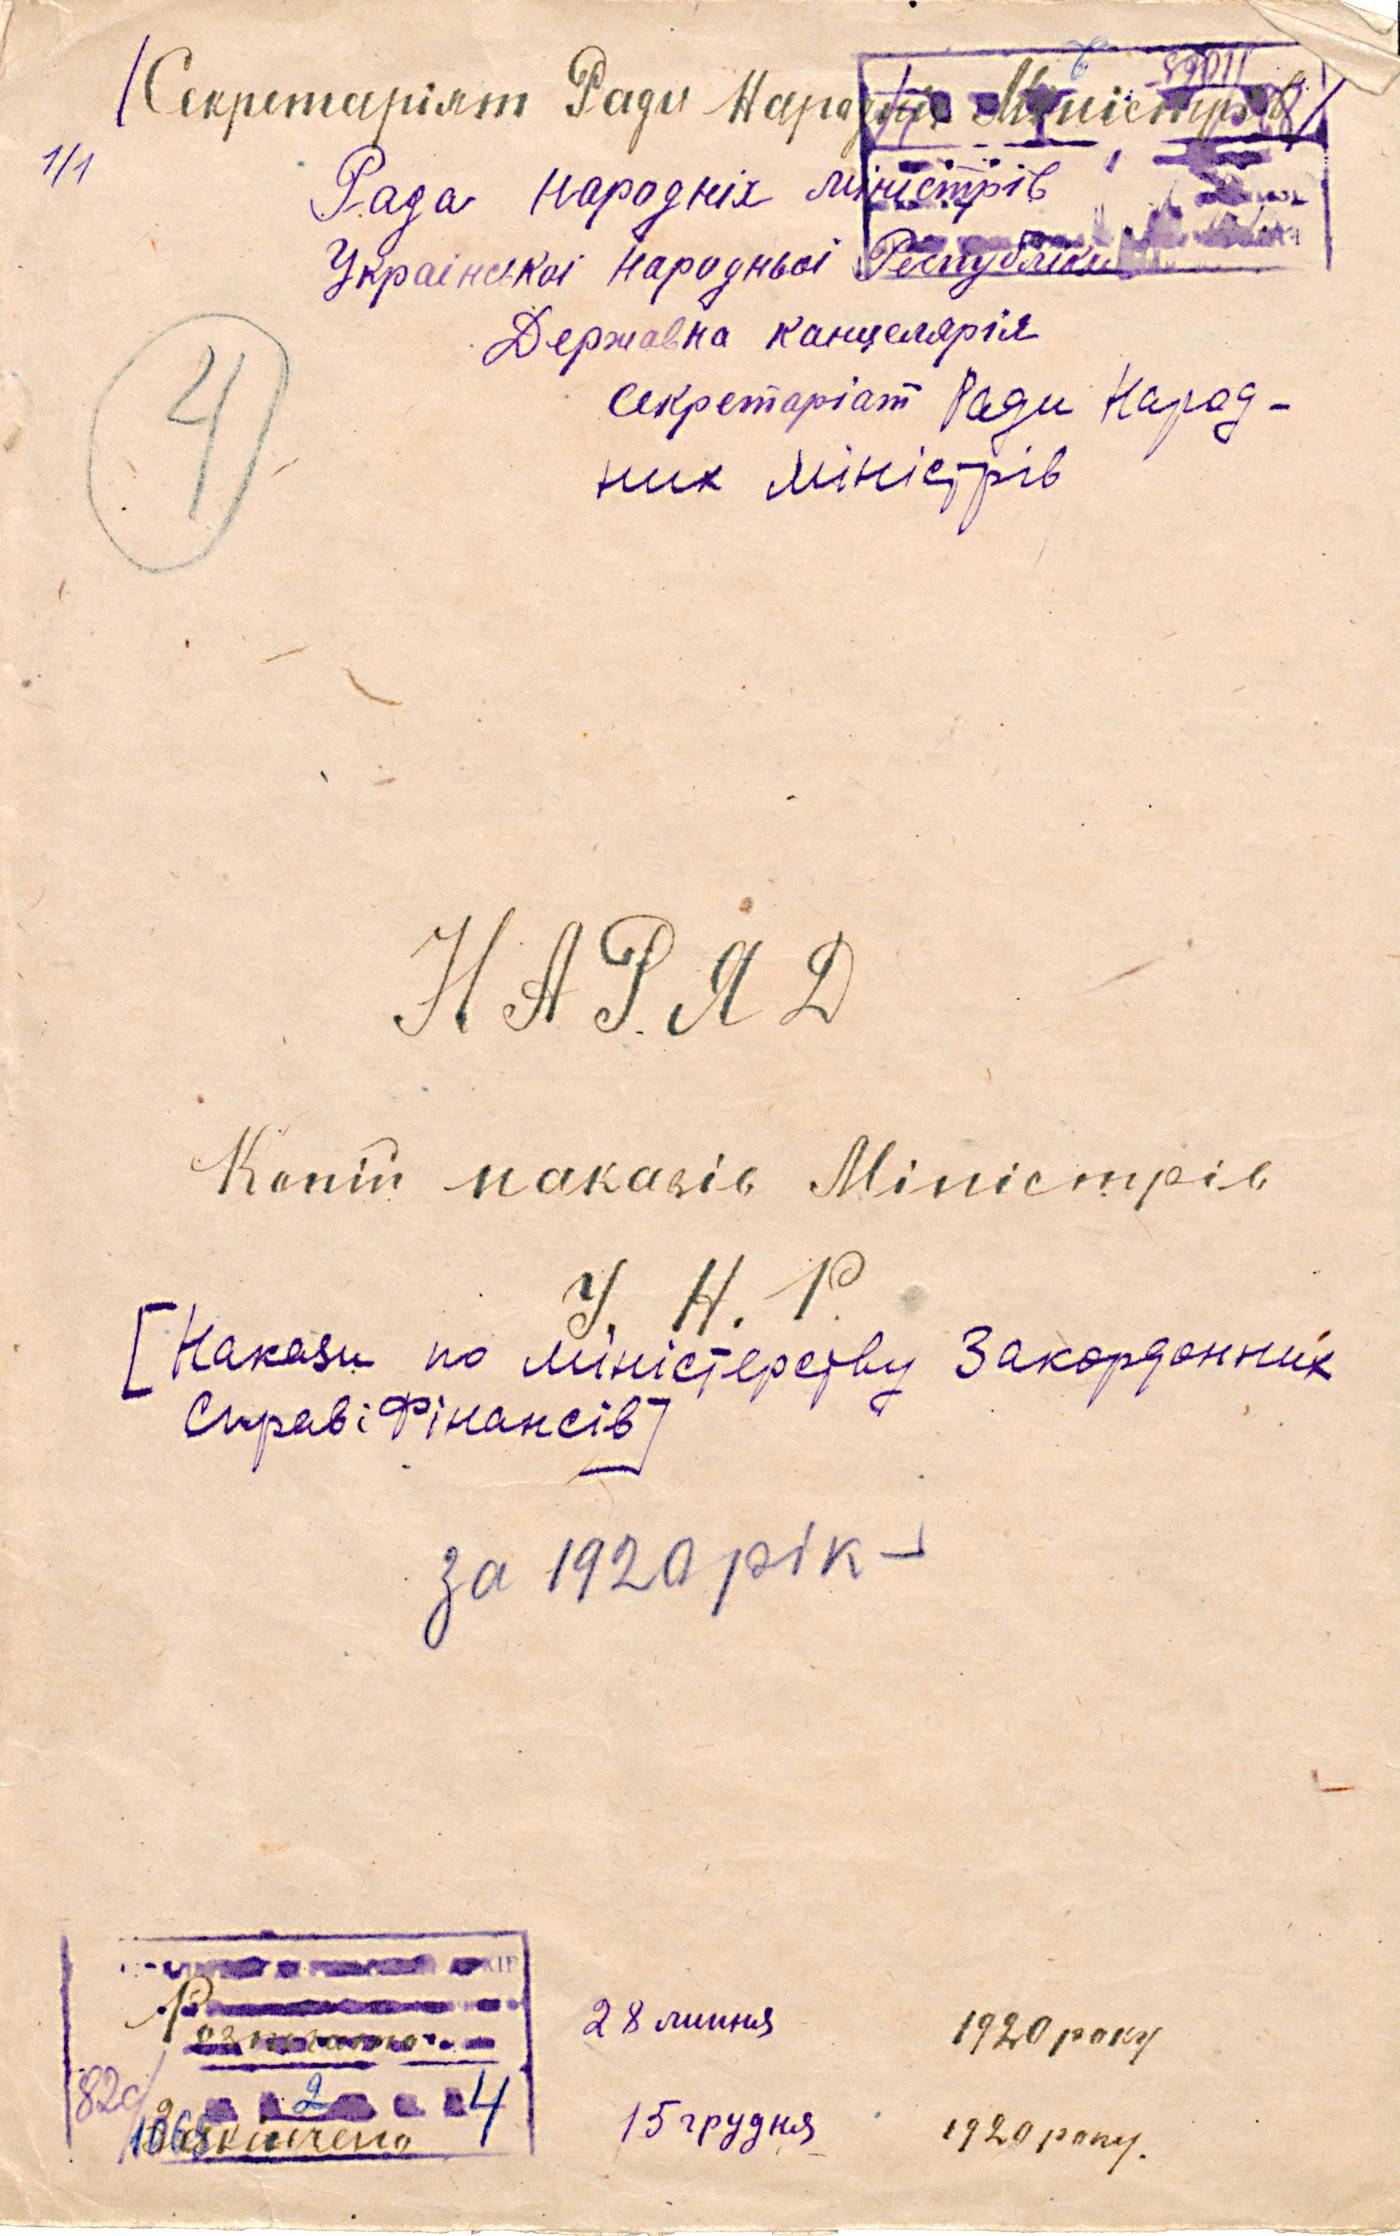 /Секретаріят Ради Народніх Міністрів/
1/1
Рада Народніх Міністрів
Украінськоі Народньоі Республіки
Державна канцелярія
Секретаріат Ради Народ-
них Міністрів
4
НАРЯД
Копій наказів Міністрів
У. Н. Р.
[Накази по Міністерству Закордонних
Справ і Фінансів]
за 1920 рік
Розпочато 28 липня 1920 року
2 4
1065
Закінчено 15 грудня 1920 року.